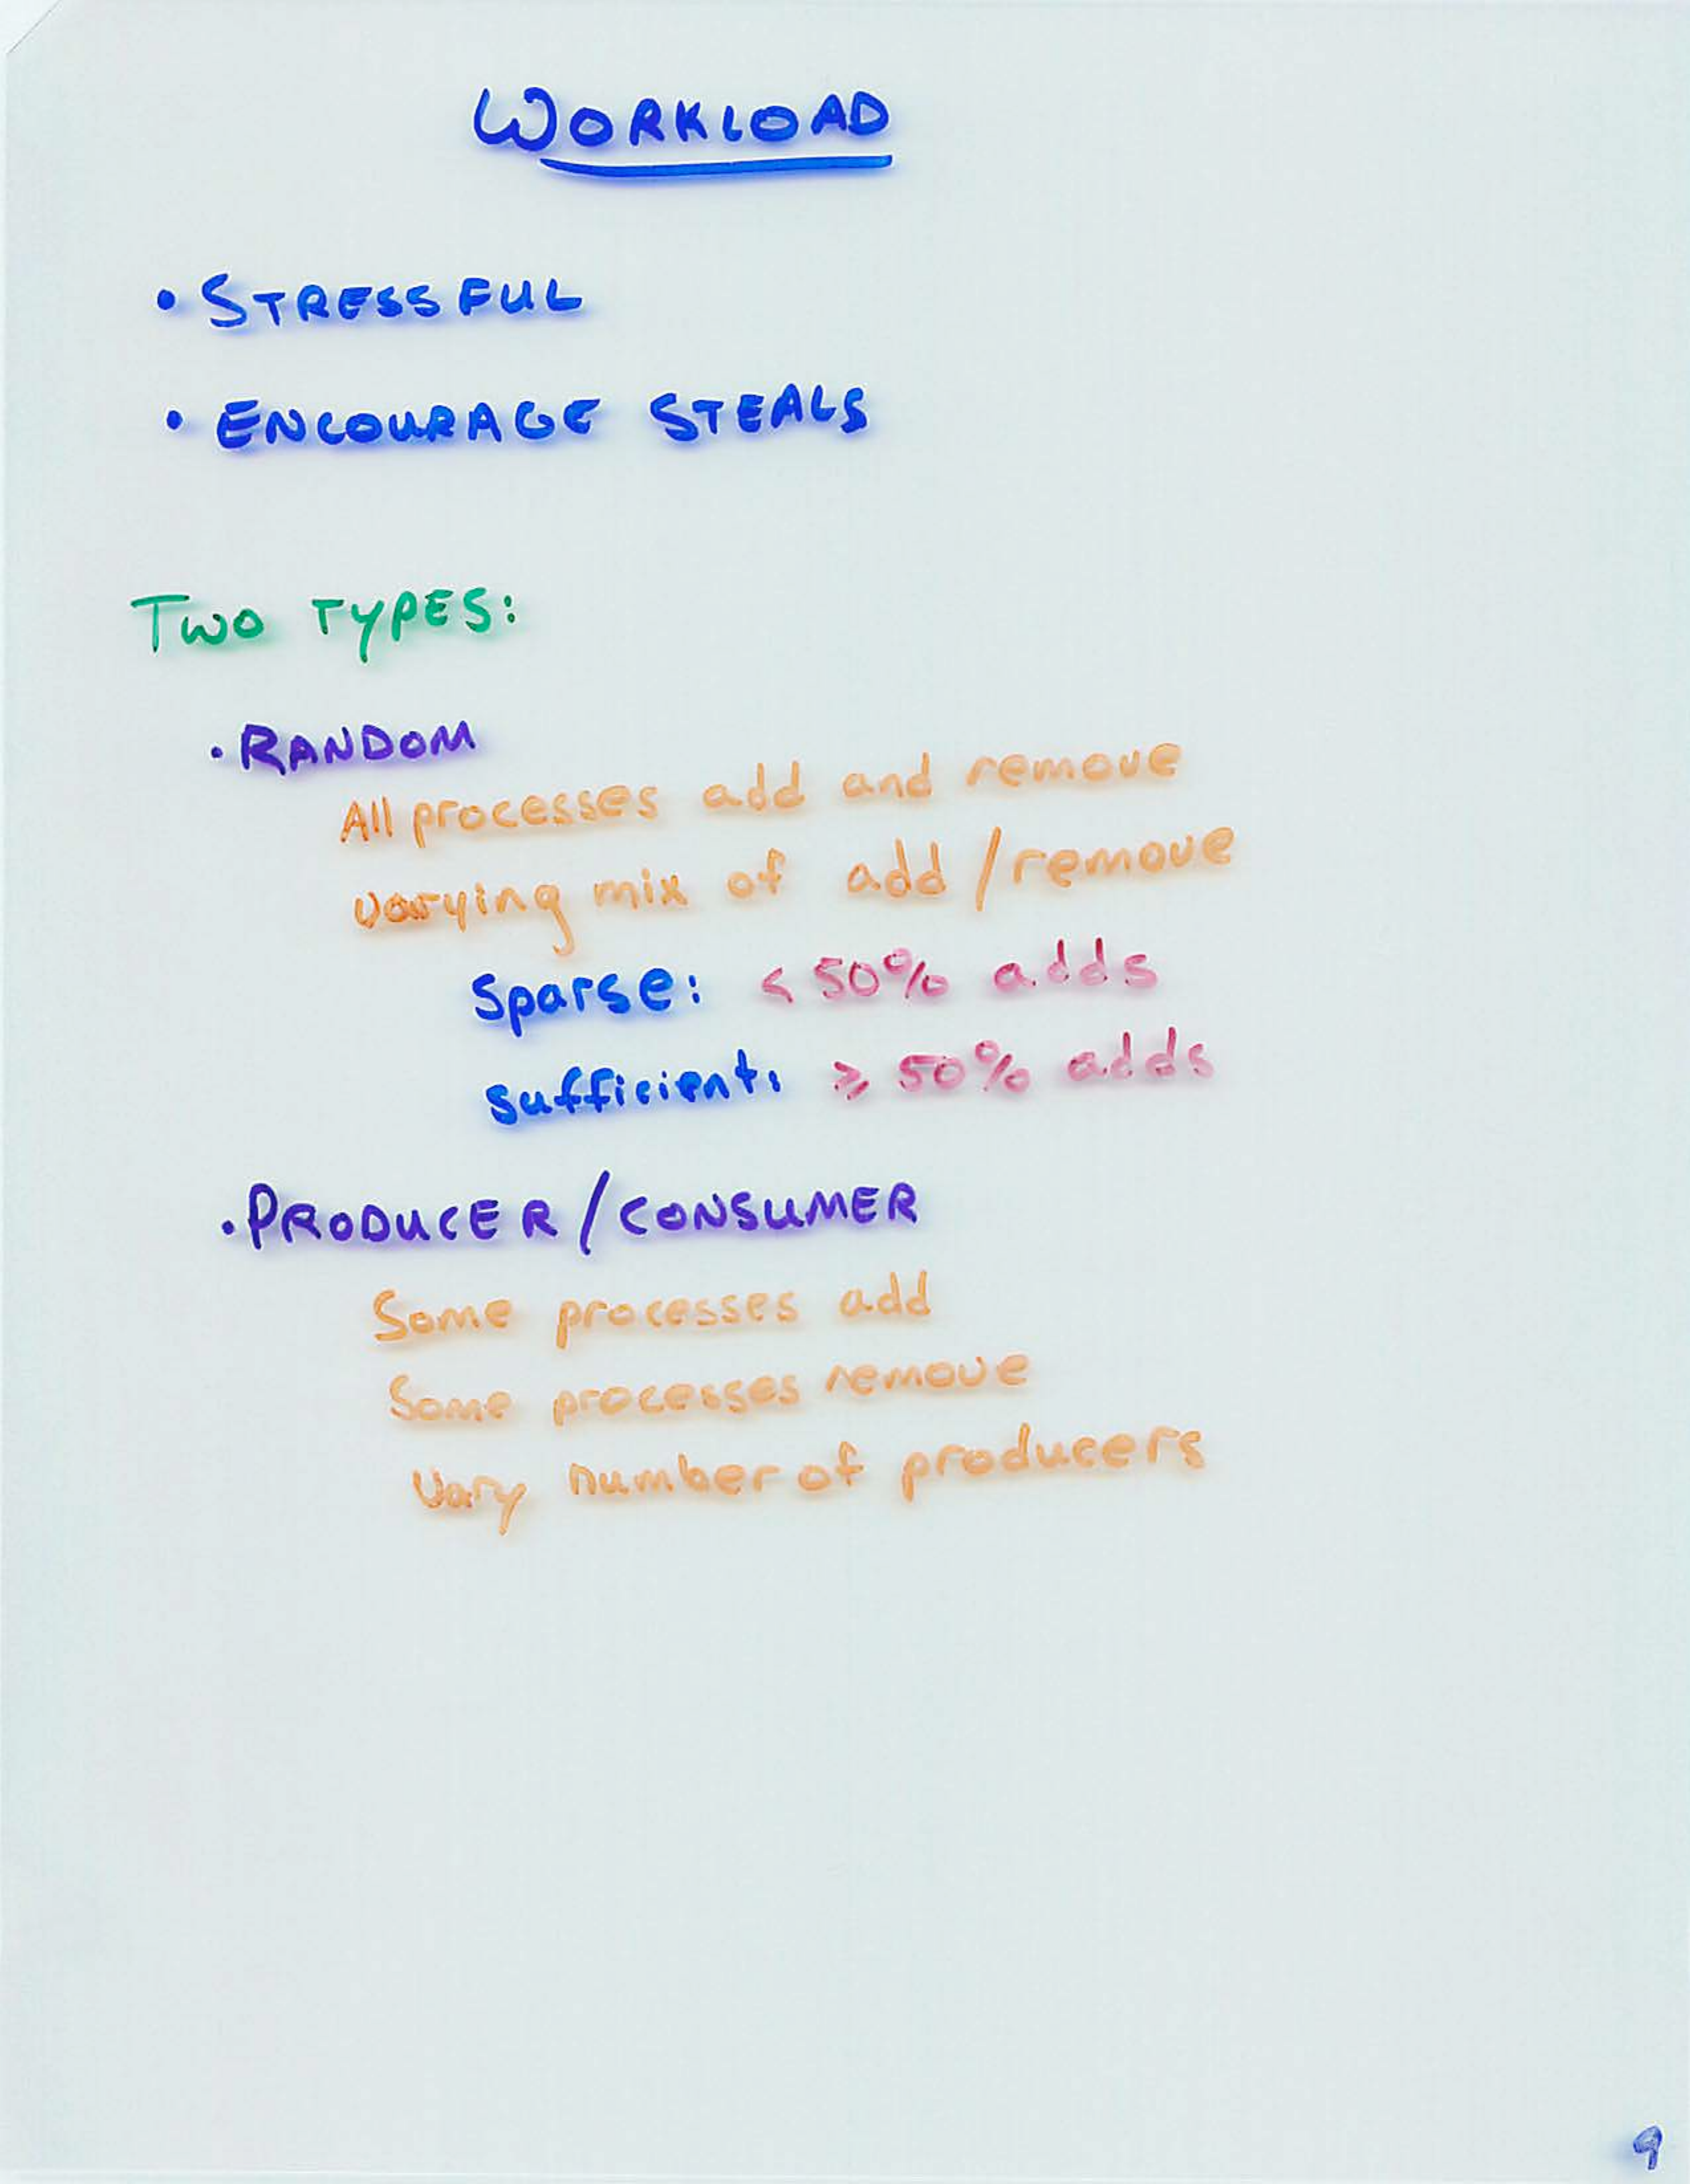 WORKLOAD
• STRESSFUL
• ENCOURAGE STEALS
TWO TYPES:
• RANDOM
All processes add and remove
varying mix of add / remove
Sparse: < 50% adds
Sufficient: ≥ 50% adds
• PRODUCER / CONSUMER
Some processes add
Some processes remove
Vary number of producers
9